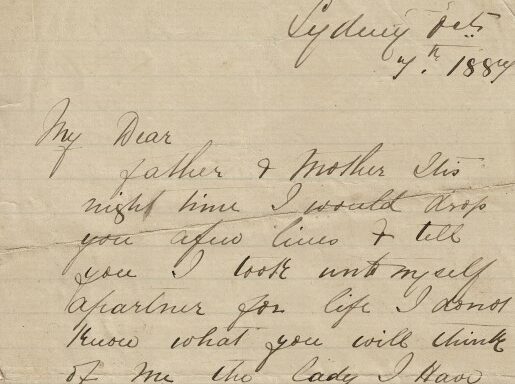 Sydney Oct
7th. 1887
My Dear
father & Mother Itis
night time I would drop
you afew lines & tell
you I took unto myself
apartner for life I donot
know what you will think
of me the lady I Have